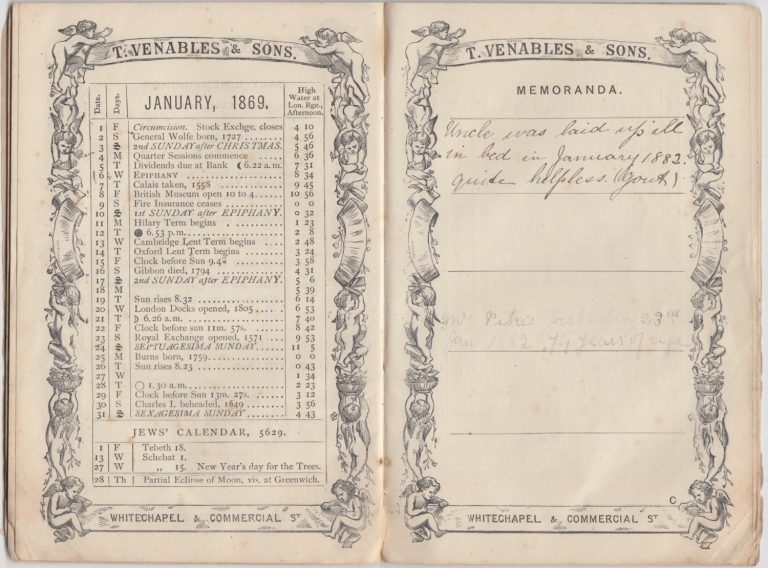 T. VENABLES & SONS.
Date. Days. JANUARY, 1869. High Water at Lon. Bge., Afternoon.
1 F Circumcision. Stock Exchge. closes 4 10
2 S General Wolfe born, 1727 ......... 4 56
3 S 2nd SUNDAY after CHRISTMAS. 5 46
4 M Quarter Sessions commence ..... 6 36
5 T Dividends due at Bank ☾ 6.22 a.m. 7 31
6 W EPIPHANY ........................... 8 34
7 T Calais taken, 1558 .................. 9 45
8 F British Museum open 10 to 4. ..... 10 56
9 S Fire Insurance ceases ............. 0 0
10 S 1st SUNDAY after EPIPHANY. 0 32
11 M Hilary Term begins ............... 1 23
12 T ● 6.53 p.m. ........................ 2 8
13 W Cambridge Lent Term begins ... 2 48
14 T Oxford Lent Term begins ........ 3 24
15 F Clock before Sun 9.42 ............ 3 58
16 S Gibbon died, 1794 ................. 4 31
17 S 2nd SUNDAY after EPIPHANY. 5 6
18 M 5 39
19 T Sun rises 8.32 ..................... 6 14
20 W London Docks opened, 1805 .... 6 53
21 T ☽ 6.26 a.m. ........................ 7 40
22 F Clock before sun 11m. 57s. ...... 8 42
23 S Royal Exchange opened, 1571 ... 9 53
24 S SEPTUAGESIMA SUNDAY ...... 11 5
25 M Burns born, 1759 .................. 0 0
26 T Sun rises 8.23 ..................... 0 43
27 W 1 34
28 T ○ 1.30 a.m. ........................ 2 23
29 F Clock before Sun 13m. 27s. ...... 3 12
30 S Charles I. beheaded, 1649 ........ 3 56
31 S SEXAGESIMA SUNDAY ......... 4 43
JEWS' CALENDAR, 5629.
1 F Tebeth 18.
13 W Schebat 1.
27 W ,, 15. New Year's day for the Trees.
28 Th Partial Eclipse of Moon, vis. at Greenwich.
WHITECHAPEL & COMMERCIAL ST
T. VENABLES & SONS.
MEMORANDA.
Uncle was laid up ill
in bed in January 1882.
quite helpless. (gout)
Mr 23rd
Jan 1882 79 years of age
C
WHITECHAPEL & COMMERCIAL ST